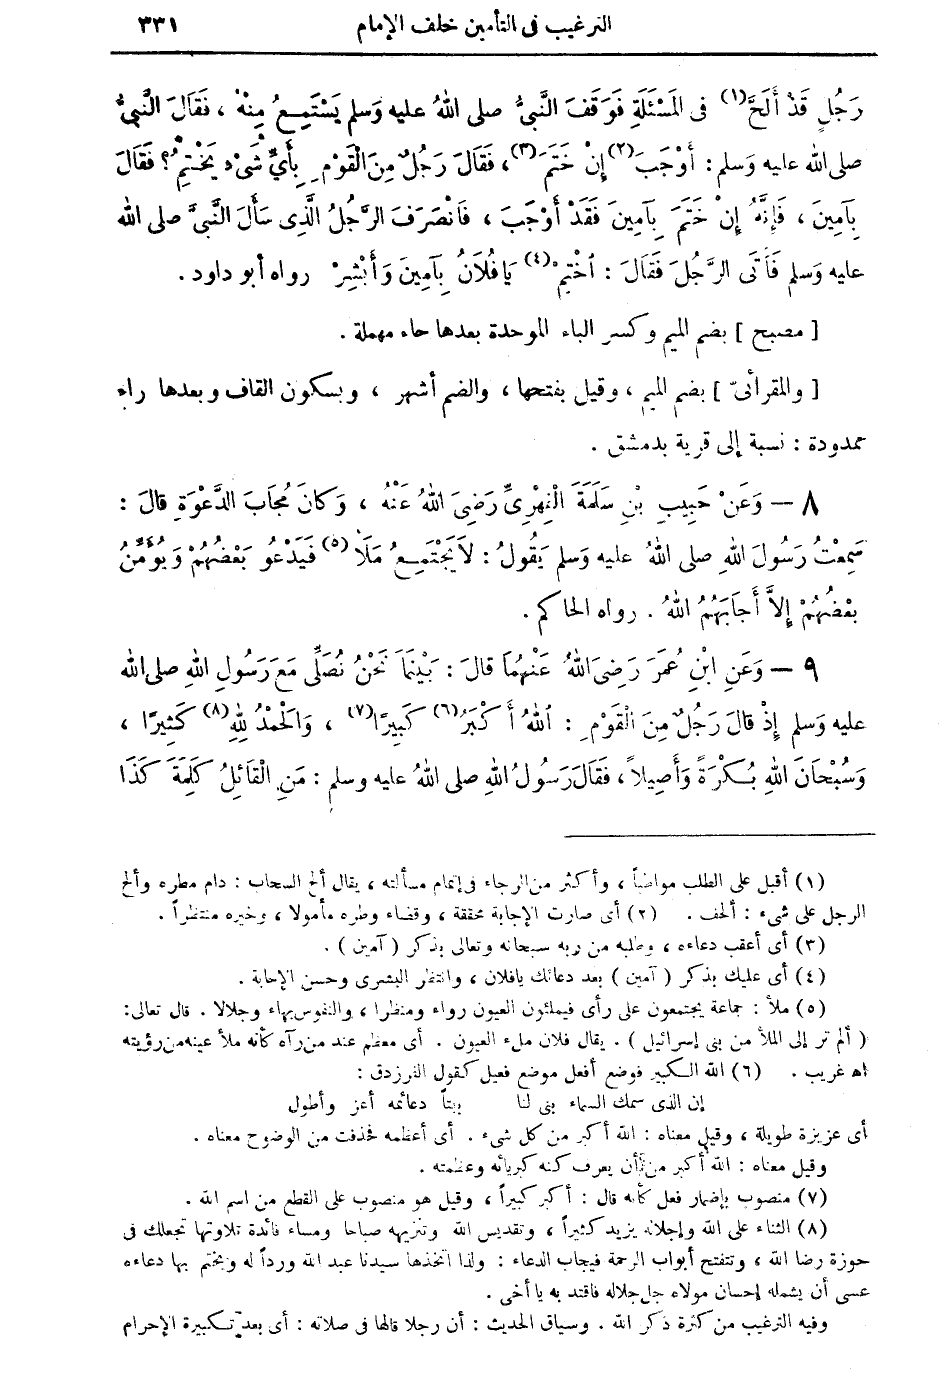 الترغيب فى التأمين خلف الإمام ٣٣١
رَجُلٍ قَدْ أَلَحَّ(١) فى المَسْئَلَةِ فَوَقَفَ النَّبِيُّ صلى اللهُ عليه وَسلم يَسْتَمِعُ مِنْهُ ، فَقَالَ النَّبِيُّ
صلى الله عليه وَسلم : أَوْجَبَ(٢) إِنْ خَتَمَ(٣) ، فَقَالَ رَجُلٌ مِنَ الْقَوْمِ بِأَيِّ شَيْءٍ يَخْتِمُ ؟ فَقَالَ
بِآمِينَ ، فَإِنَّهُ إِنْ خَتَمَ بِآمِينَ فَقَدْ أَوْجَبَ ، فَانْصَرَفَ الرَّجُلُ الَّذِى سَأَلَ النَّبِيَّ صلى الله
عليه وَسلم فَأَتَى الرَّجُلَ فَقَالَ : اخْتِمْ(٤) يَا فُلَانُ بِآمِينَ وَأَبْشِرْ رواه أبو داود .
[ مصبح ] بضم الميم وكسر الباء الموحدة بعدها حاء مهملة .
[ والمقرأئىّ ] بضم الميم ، وقيل بفتحها ، والضم أشهر ، وبسكون القاف وبعدها راء
ممدودة : نسبة إلى قرية بدمشق .
٨ — وَعَنْ حَبِيبِ بْنِ سَلَمَةَ الْفِهْرِىِّ رَضِىَ اللهُ عَنْهُ ، وَكَانَ مُجَابَ الدَّعْوَةِ قالَ :
سَمِعْتُ رَسُولَ اللهِ صلى اللهُ عليه وسلم يَقُولُ : لاَ يَجْتَمِعُ مَلَأٌ(٥) فَيَدْعُو بَعْضُهُمْ وَيُؤَمِّنُ
بَعْضُهُمْ إِلاَّ أَجَابَهُمُ اللهُ . رواه الحاكم .
٩ — وَعَنِ ابْنِ عُمَرَ رَضِىَ اللهُ عَنْهُمَا قالَ : بَيْنَمَا نَحْنُ نُصَلِّى مَعَ رَسُولِ اللهِ صلى الله
عليه وسلم إِذْ قالَ رَجُلٌ مِنَ الْقَوْمِ : اللهُ أَكْبَرُ(٦) كَبِيرًا(٧) ، وَالْحَمْدُ لِلهِ(٨) كَثِيرًا ،
وَسُبْحَانَ اللهِ بُكْرَةً وَأَصِيلاً ، فَقَالَ رَسُولُ اللهِ صلى اللهُ عليه وسلم : مَنِ الْقَائِلُ كَلِمَةَ كَذَا
(١) أقبل على الطلب مواظباً ، وأكثر من الرجاء فى إتمام مسألته ، يقال ألح السحاب : دام مطره وألح
الرجل على شىء : ألحف . (٢) أى صارت الإجابة محققة ، وقضاء وطره مأمولا ، وخيره منتظراً .
(٣) أى أعقب دعاءه ، وطلبه من ربه سبحانه وتعالى بذكر ( آمين ) .
(٤) أى عليك بذكر ( آمين ) بعد دعائك يافلان ، وانتظر البشرى وحسن الإجابة .
(٥) ملأ : جماعة يجتمعون على رأى فيملئون العيون رواء ومنظرا ، والنفوس بهاء وجلالا . قال تعالى:
( ألم تر إلى الملأ من بنى إسرائيل ) . يقال فلان ملء العيون . أى معظم عند من رآه كأنه ملأ عينه من رؤيته
اه غريب . (٦) الله الكبير فوضع أفعل موضع فعيل كقول الفرزدق :
إن الذى سمك السماء بنى لنا بيتاً دعائمه أعز وأطول
أى عزيزة طويلة ، وقيل معناه : الله أكبر من كل شىء . أى أعظمه فحذفت من الوضوح معناه .
وقيل معناه : الله أكبر من أن يعرف كنه كبريائه وعظمته .
(٧) منصوب بإضمار فعل كأنه قال : أكبر كبيراً ، وقيل هو منصوب على القطع من اسم الله .
(٨) الثناء على الله وإجلاله يزيد كثيراً ، وتقديس الله وتنزيهه صباحا ومساء فائدة تلاوتها تجعلك فى
حوزة رضا الله ، وتتفتح أبواب الرحمة فيجاب الدعاء : ولذا اتخذها سيدنا عبد الله ورداً له ويختم بها دعاءه
عسى أن يشمله إحسان مولاه جل جلاله فاقتد به يا أخى .
وفيه الترغيب من كثرة ذكر الله . وسياق الحديث : أن رجلا قالها فى صلاته : أى بعد تكبيرة الإحرام